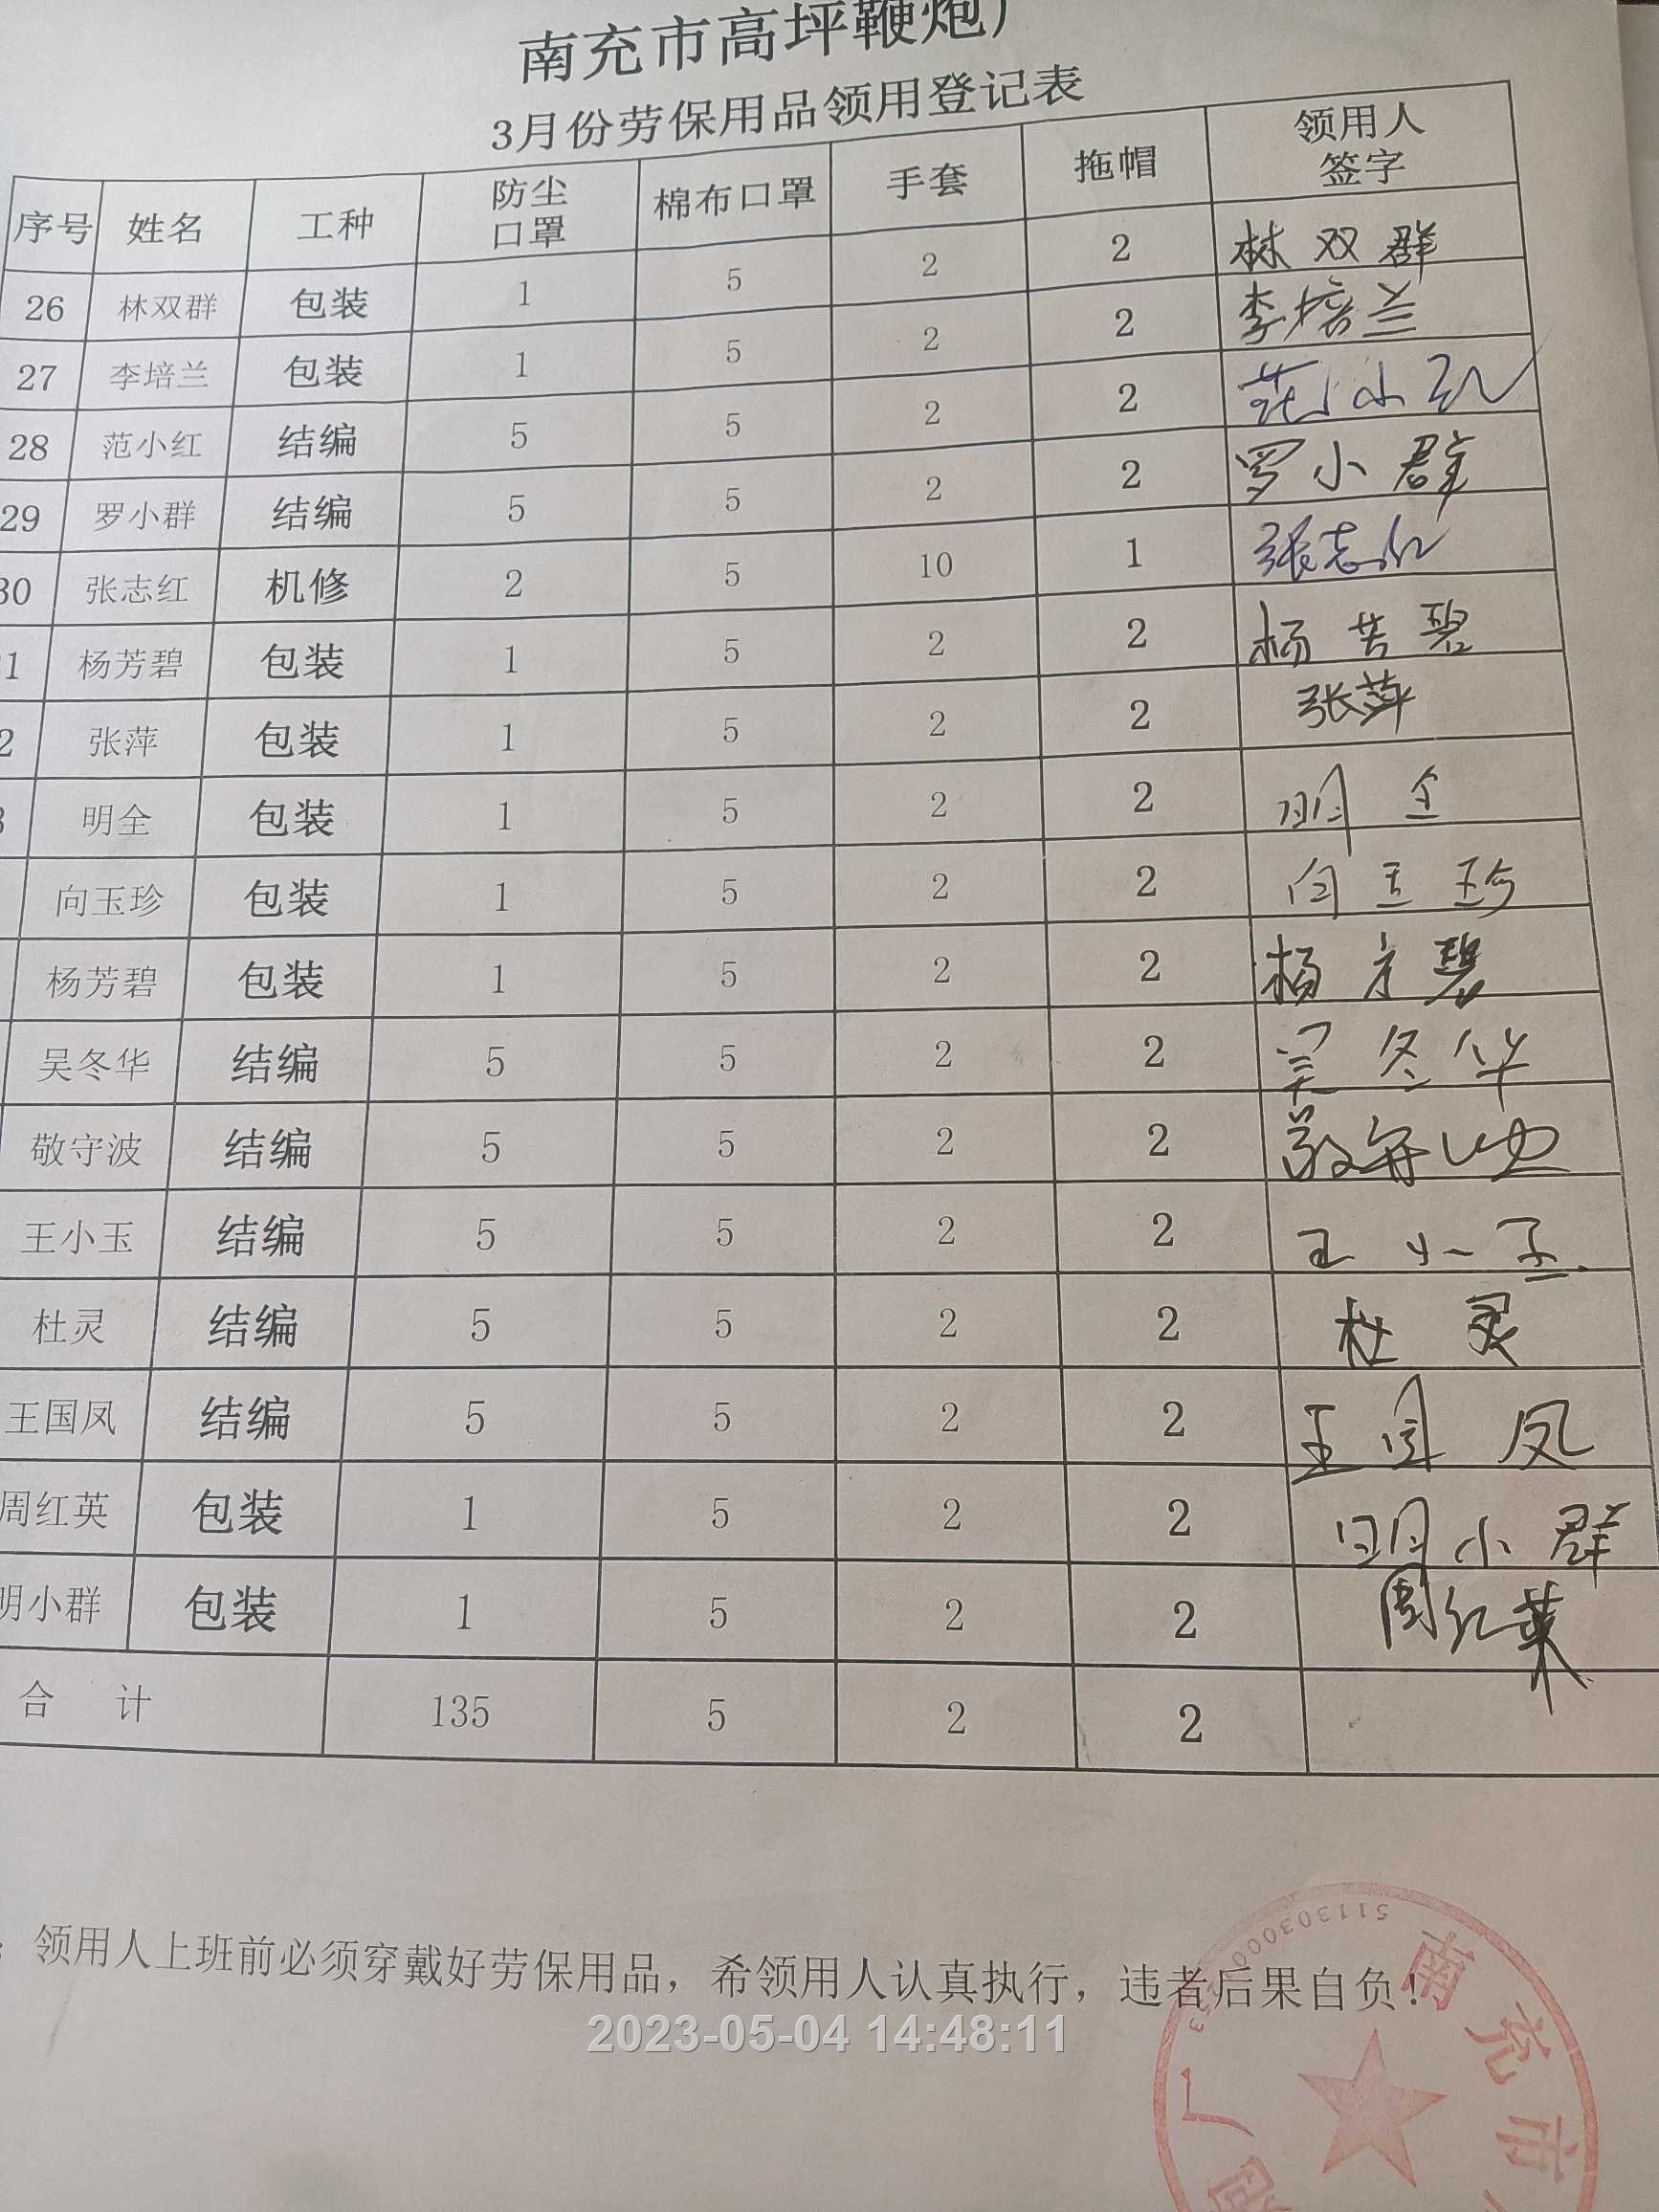 南充市高坪鞭炮厂
3月份劳保用品领用登记表
序号 姓名 工种 防尘口罩 棉布口罩 手套 拖帽 领用人签字
26 林双群 包装 1 5 2 2 林双群
27 李培兰 包装 1 5 2 2 李培兰
28 范小红 结编 5 5 2 2 范小红
29 罗小群 结编 5 5 2 2 罗小群
30 张志红 机修 2 5 10 1 张志红
1 杨芳碧 包装 1 5 2 2 杨芳碧
2 张萍 包装 1 5 2 2 张萍
3 明全 包装 1 5 2 2 明全
向玉珍 包装 1 5 2 2 向玉珍
杨芳碧 包装 1 5 2 2 杨方碧
吴冬华 结编 5 5 2 2 吴冬华
敬守波 结编 5 5 2 2 敬守波
王小玉 结编 5 5 2 2 王小玉
杜灵 结编 5 5 2 2 杜灵
王国凤 结编 5 5 2 2 王国凤
周红英 包装 1 5 2 2 明小群
明小群 包装 1 5 2 2 周红英
合 计 135 5 2 2
：领用人上班前必须穿戴好劳保用品，希领用人认真执行，违者后果自负！
2023-05-04 14:48:11
南充市
厂